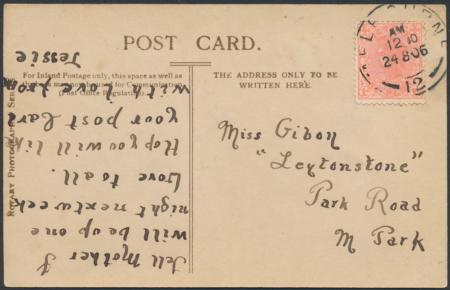 POST CARD.
For Inland Postage only, this space as well as
(Post Office Regulation).
THE ADDRESS ONLY TO BE
WRITTEN HERE.
AM
12 10
24 8 06
12
Miss Gibon
"Leytonstone"
Park Road
M Park
Tell Mother I
will be up one
night next week
Love to all.
Hop you will lik
your post Car
with Love from
Jessie
ROTARY PHOTOGRAPHIC SERIES